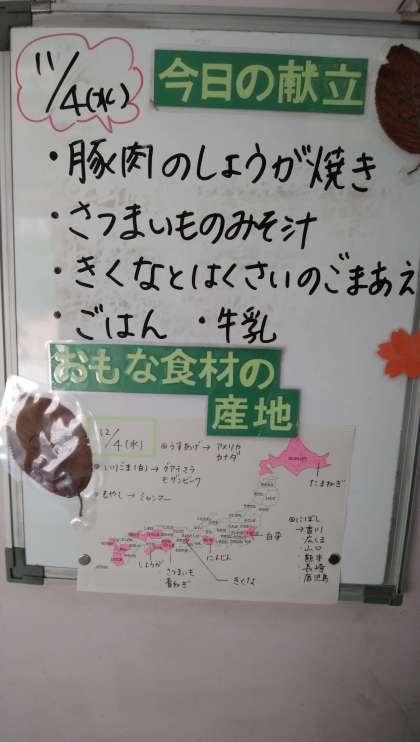 11/4(水)
今日の献立
・豚肉のしょうが焼き
・さつまいものみそ汁
・きくなとはくさいのごまあえ
・ごはん ・牛乳
おもな食材の
産地
12/4(水)
うすあげ→アメリカ
カナダ
いりごま(白)→グアテマラ
モザンビーク
もやし→ミャンマー
たまねぎ
にぼし
→香川
広しま
山口
熊本
長崎
鹿児島
白菜
にんじん
しょうが
さつまいも
青ねぎ
きくな